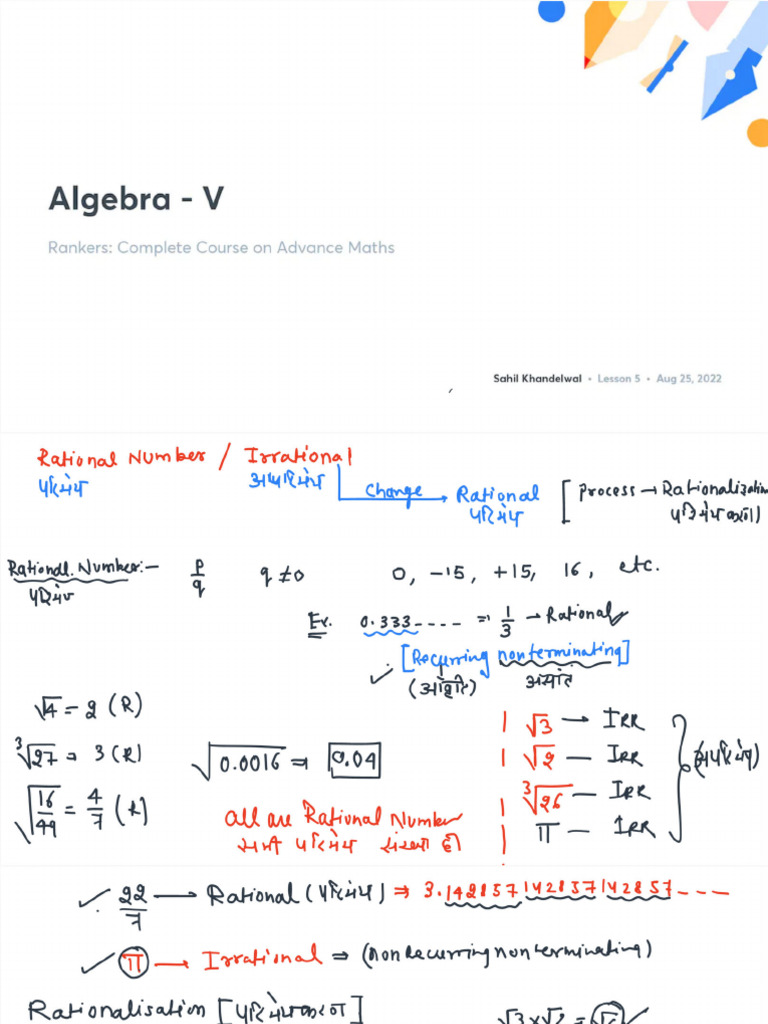 Algebra - V
Rankers: Complete Course on Advance Maths
Sahil Khandelwal • Lesson 5 • Aug 25, 2022
Rational Number / Irrational
परिमेय अपरिमेय Change Rational [Process → Rationalization
परिमेय परिमेय करना]
Rational Number:- p/q q≠0 0, -15, +15, 16, etc.
परिमेय
Ex. 0.333---- = 1/3 → Rational
[Recurring nonterminating]
(आवृत्ति) असांत
√4 = 2 (R)
∛27 = 3 (R)
√0.0016 ⇒ 0.04
√16/49 = 4/7 (R)
√3 → IRR
√2 — IRR
∛26 — IRR
π — IRR
(अपरिमेय)
All are Rational Number
सभी परिमेय संख्या है
22/7 → Rational (परिमेय) ⇒ 3.142857142857142857---
π → Irrational ⇒ (nonRecurring nonterminating)
Rationalisation [परिमेयकरण]